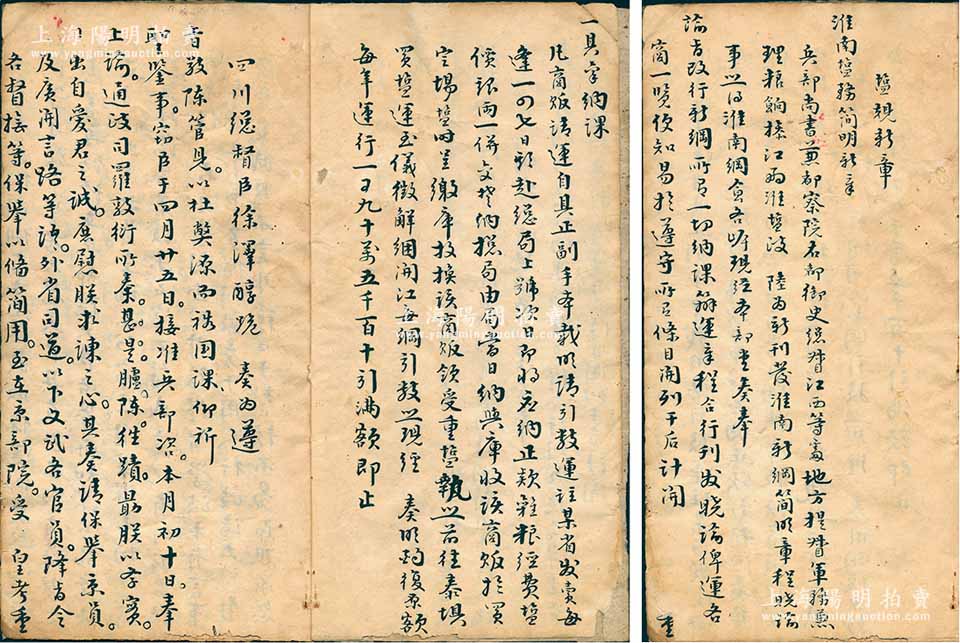 鹽規新章
淮南鹽務簡明新章
兵部尚書兼都察院右都御史總督江西等處地方提督軍務兼
理糧餉操江兩淮鹽政 陸為新刊發淮南新綱簡明章程曉諭
事照得淮南綱食各岸現經本部堂奏奉
諭旨改行新綱所有一切納課辦運章程合行刊發曉諭俾運各
商一覽便知易於遵守所有條目開列于后計開
一具呈納課
凡商販請運自具正副手本載明請引數運往某省發賣每
逢一四七日影赴總局上號次日即將應納正款雜糧經費鹽
價銀兩一併交楚納總局由局當日納與庫收該商販於買
定場鹽時呈繳庫收換該商販領受重鹽執照前往泰壩
買鹽運至儀徵解綑開江每綱引數照現經 奏明酌復原額
每年運行一百九十萬五千百十引滿額即止
四川總督臣徐澤醇跪 奏為遵
旨敬陳管見以杜弊源而裕國課仰祈
聖鑒事。竊臣于四月廿五日。接准兵部咨。本月初十日。奉
上諭。通政司羅敦衍所奏。甚是。臚陳往蹟。最朕以孝實。
出自愛君之誠。庶慰朕求諫之心。其奏請保舉京員。
及廣開言路等語。外省司道。以下文武各官員。降旨令
各督撫等。保舉以備簡用。至在京部院。受 皇考重
上海陽明拍賣
www.yangmingauction.com
上海陽明拍賣
www.yangmingauction.com
上海陽明拍賣
www.yangmingauction.com